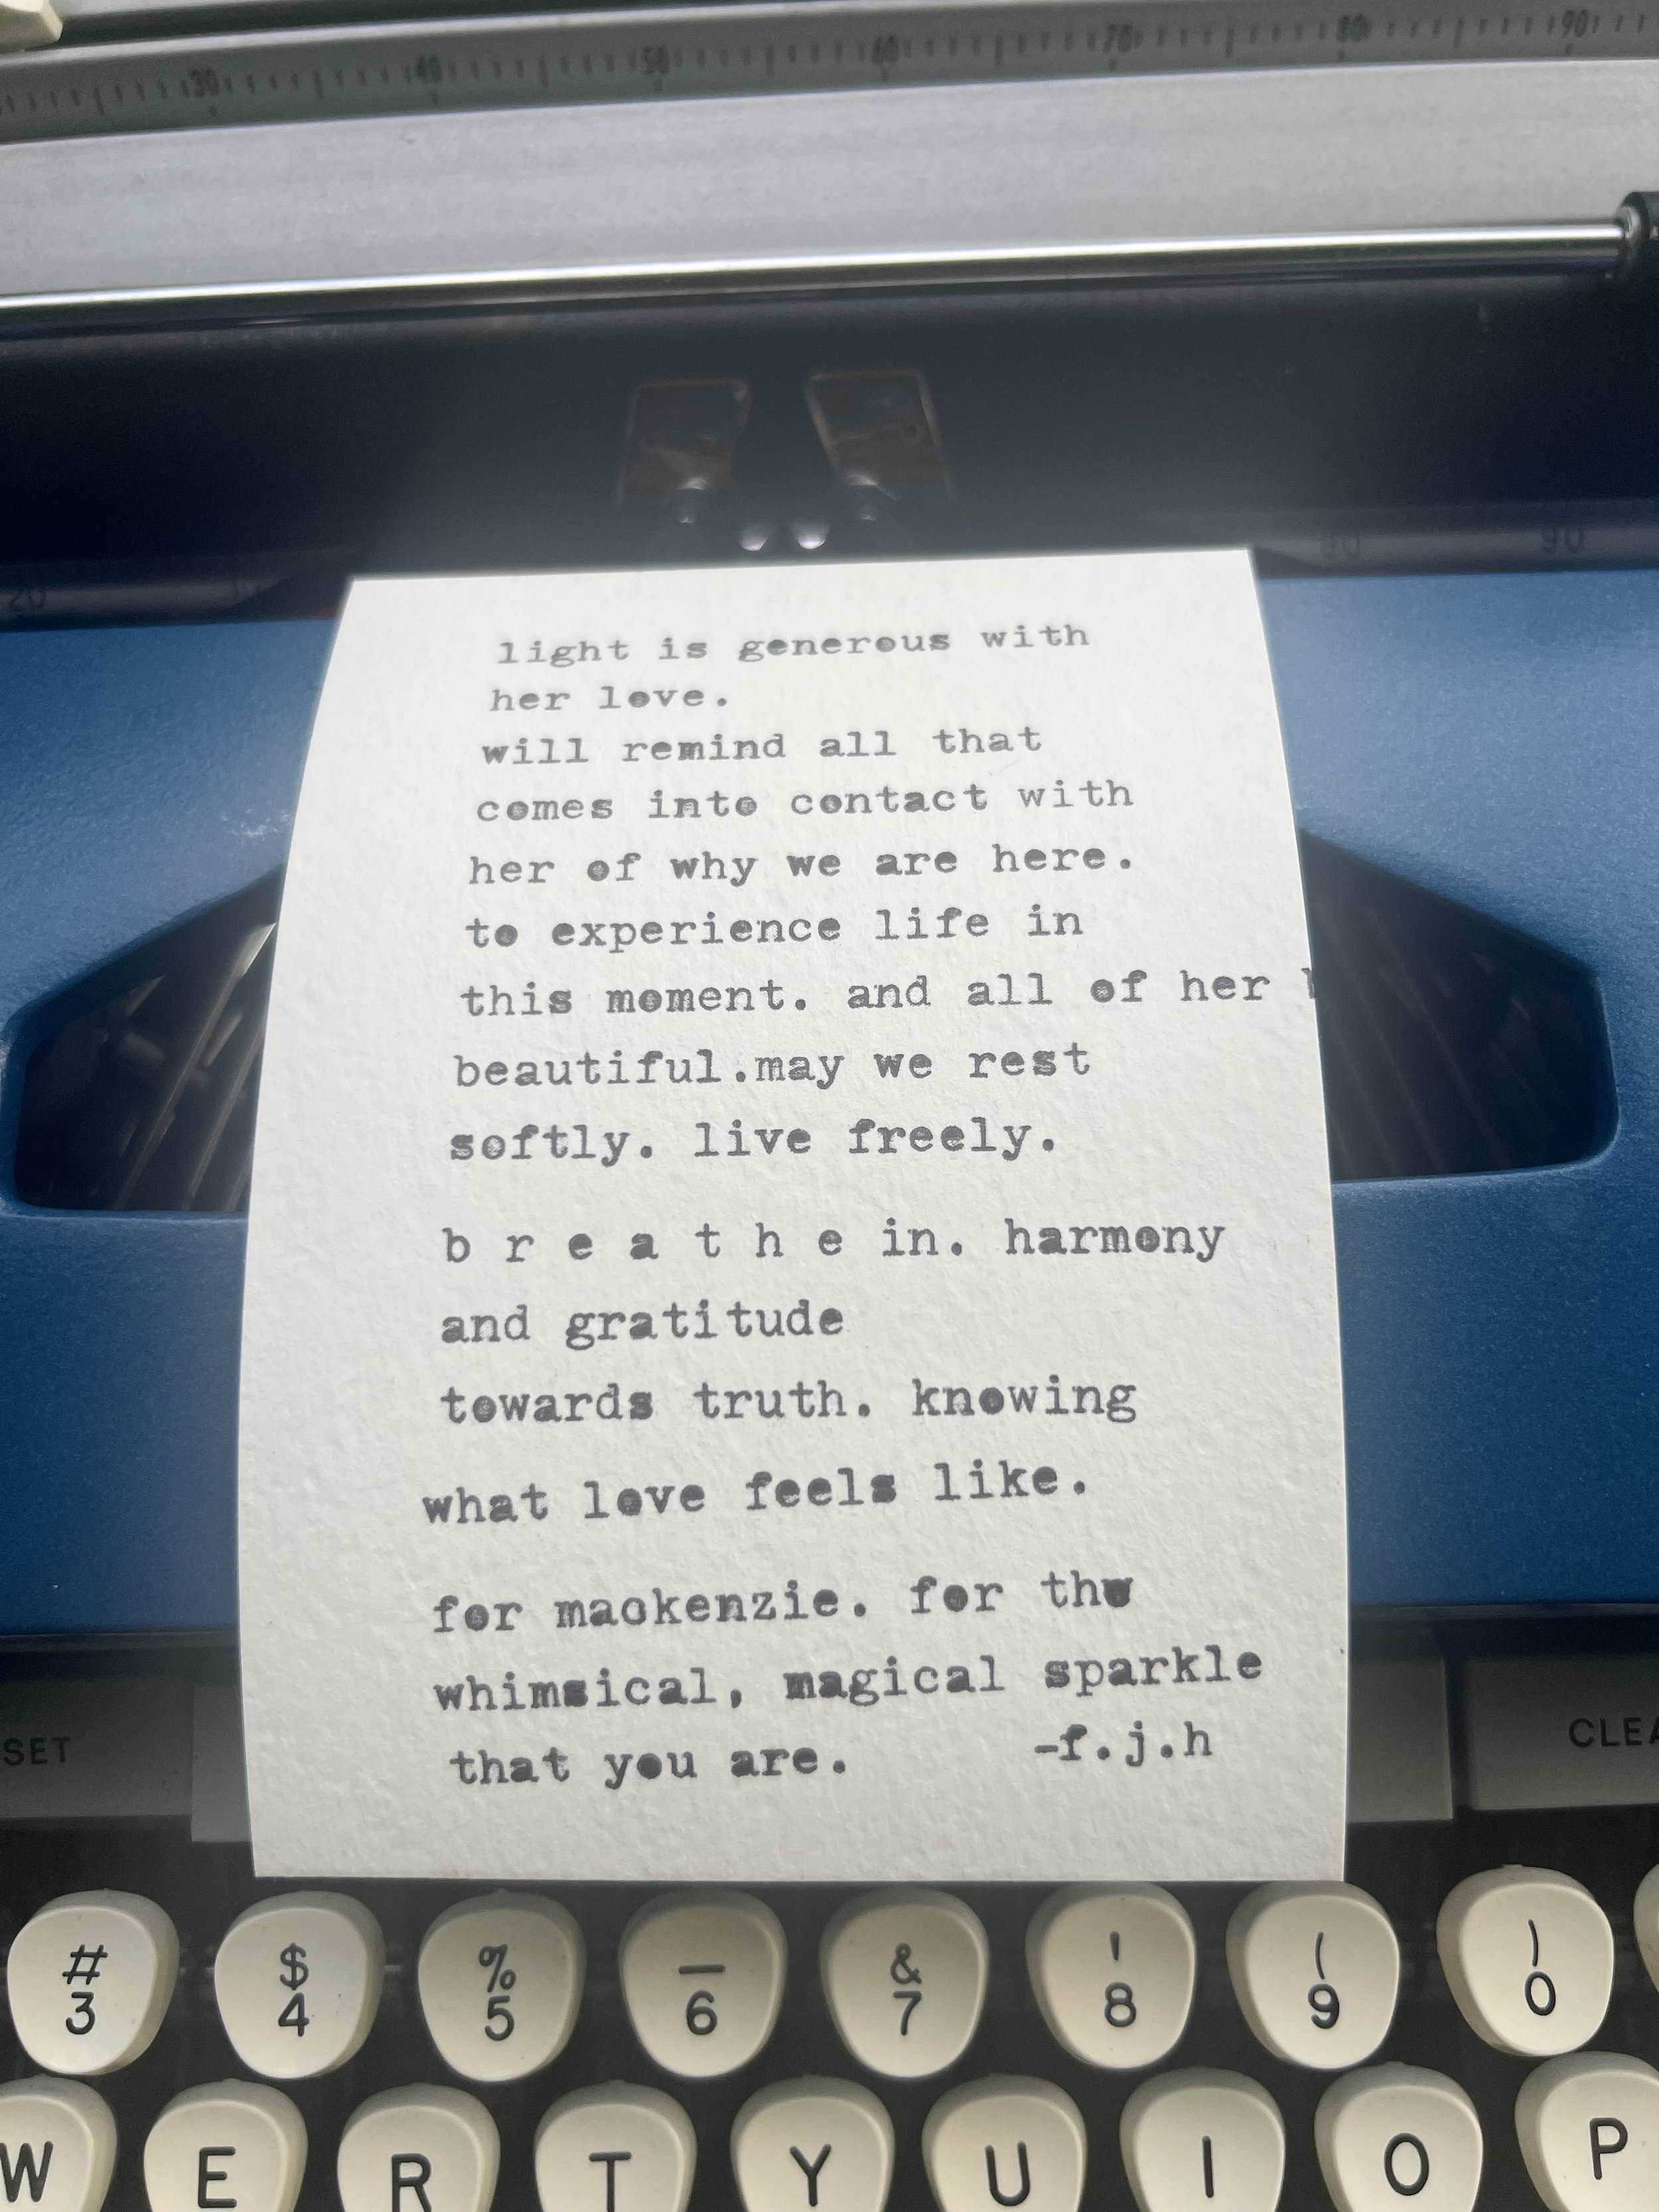 30 40 50 60 70 80 90
20 90
light is generous with
her love.
will remind all that
comes into contact with
her of why we are here.
to experience life in
this moment. and all of her
beautiful.may we rest
softly. live freely.
b r e a t h e in. harmony
and gratitude
towards truth. knowing
what love feels like.
for mackenzie. for the
whimsical, magical sparkle
that you are. -f.j.h
SET
# $ % _ & ' ( )
3 4 5 6 7 8 9 0
W E R T Y U I O P